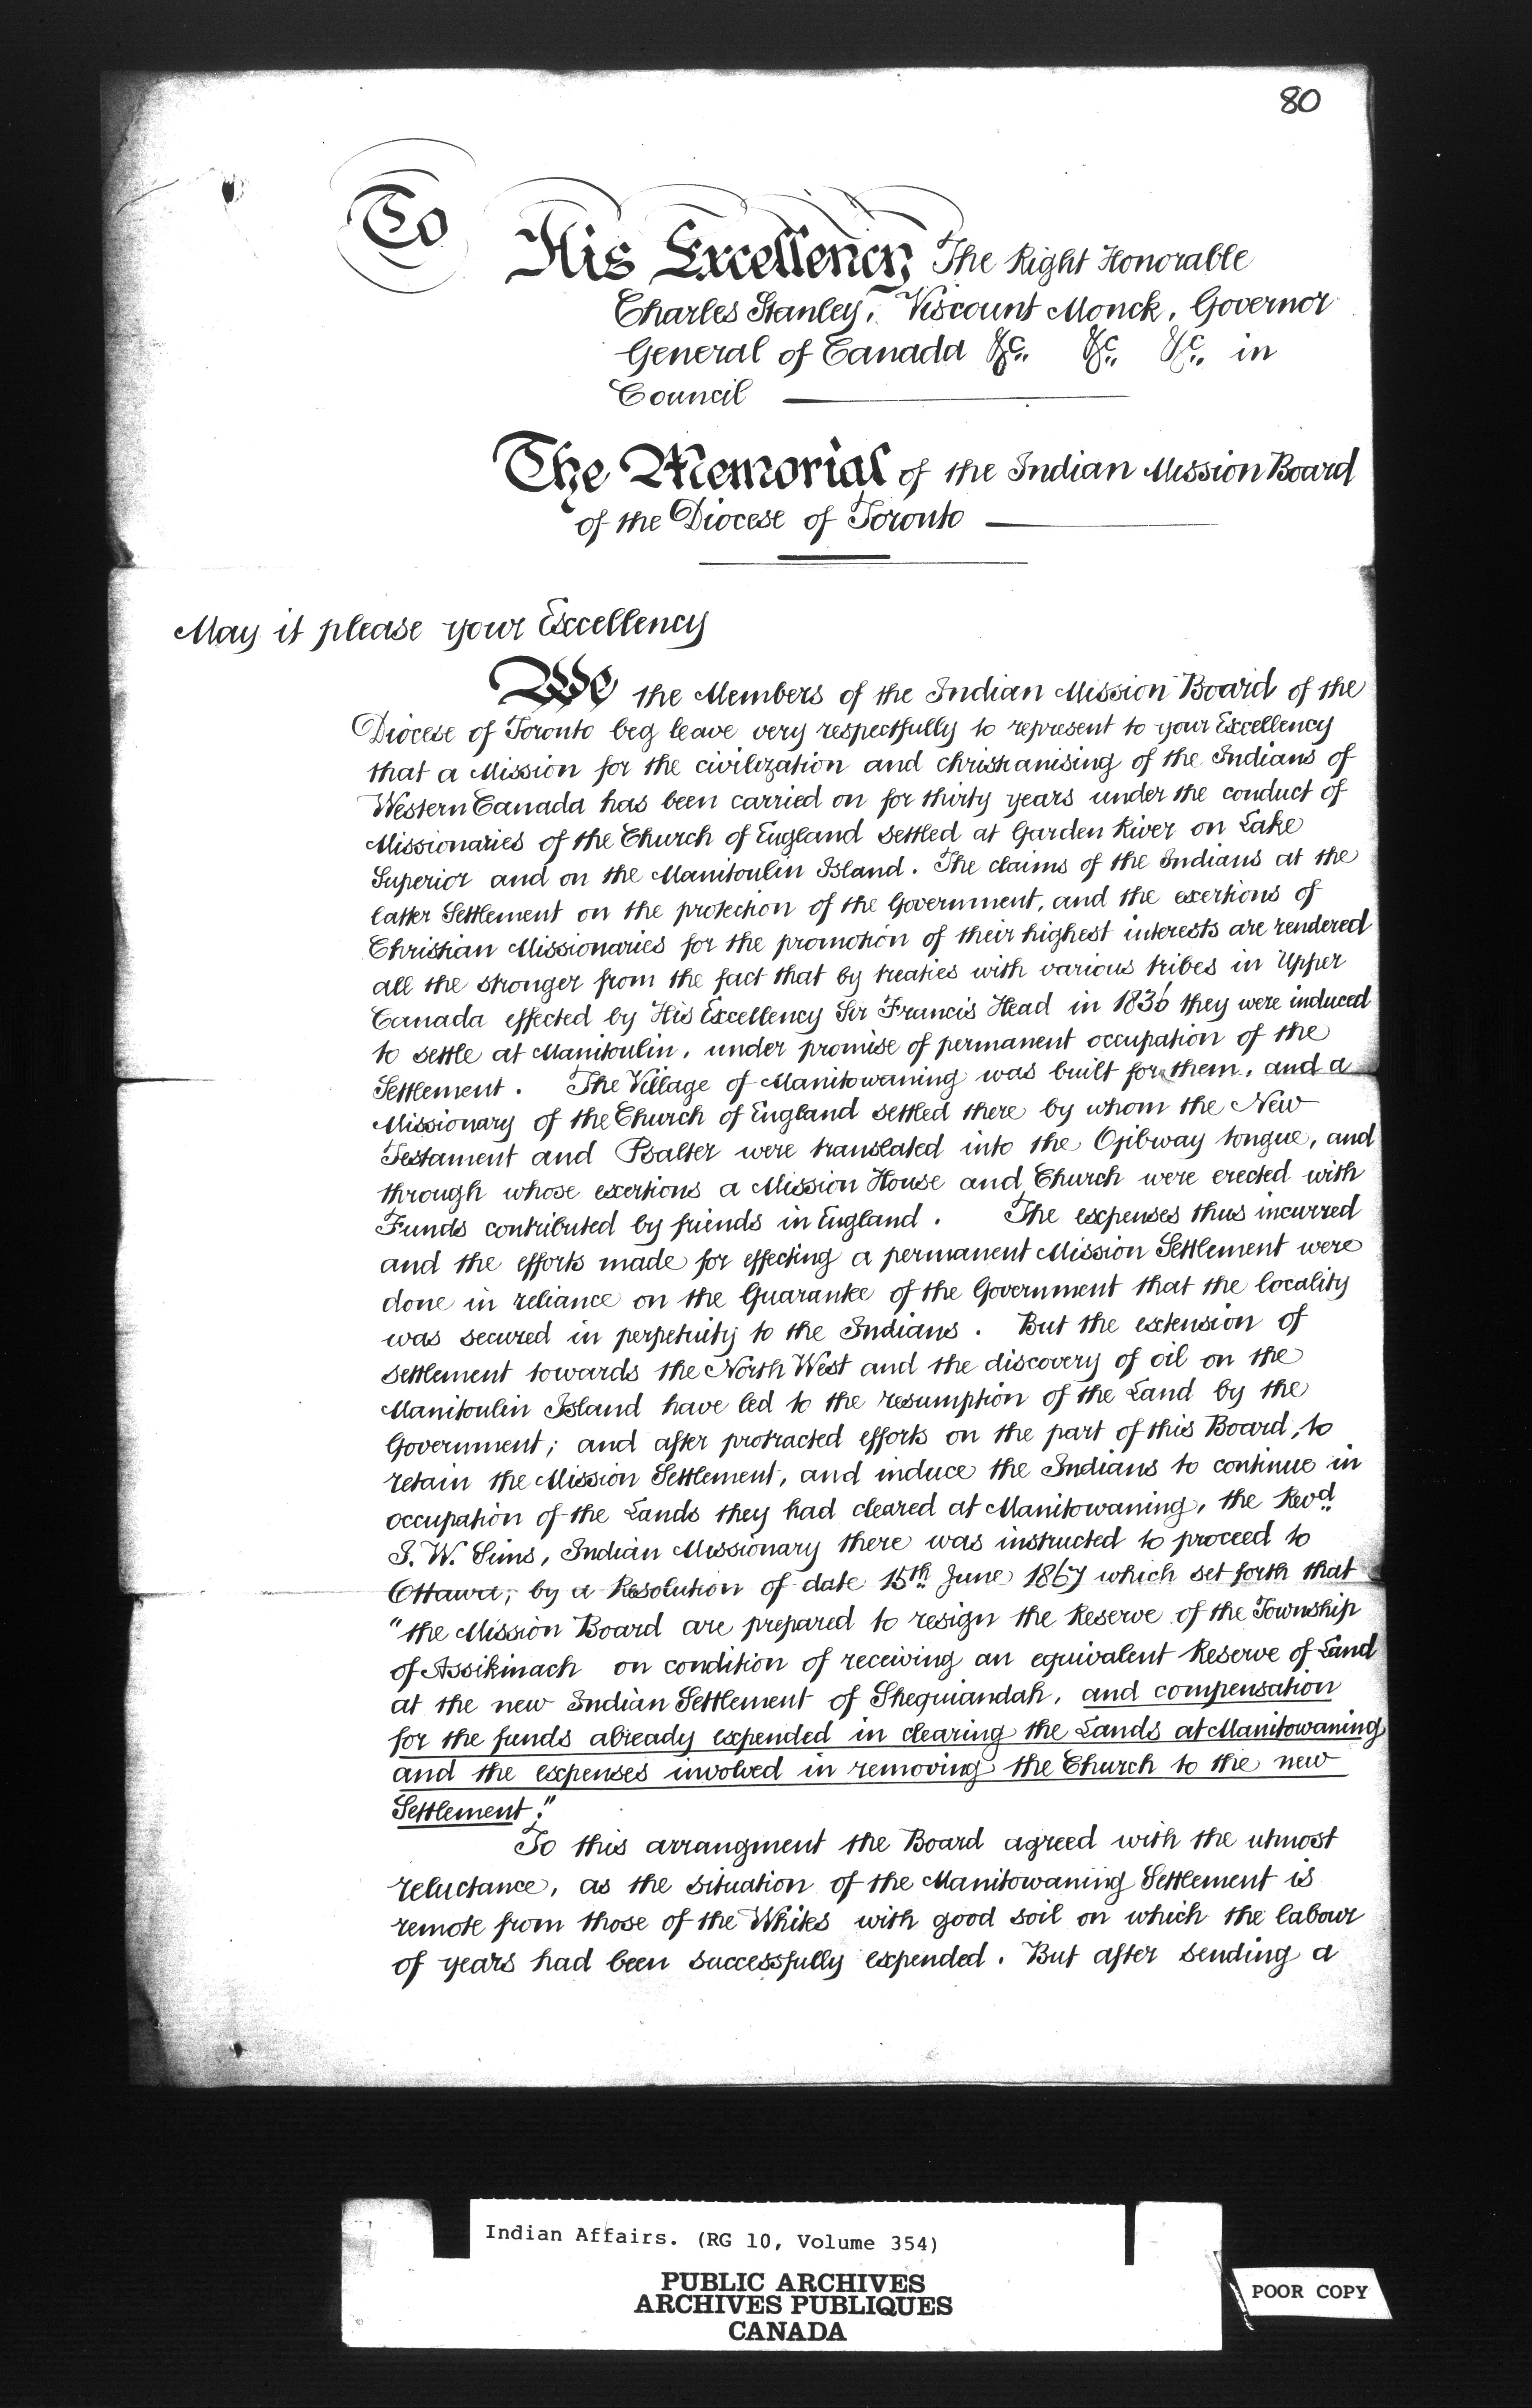 80
To
His Excellency The Right Honorable
Charles Stanley, Viscount Monck, Governor
General of Canada &c. &c. &c. in
Council
The Memorial of the Indian Mission Board
of the Diocese of Toronto
May it please your Excellency
We the Members of the Indian Mission Board of the
Diocese of Toronto beg leave very respectfully to represent to your Excellency
that a Mission for the civilization and christianising of the Indians of
Western Canada has been carried on for thirty years under the conduct of
Missionaries of the Church of England settled at Garden River on Lake
Superior and on the Manitoulin Island. The claims of the Indians at the
latter Settlement on the protection of the Government, and the exertions of
Christian Missionaries for the promotion of their highest interests are rendered
all the stronger from the fact that by treaties with various tribes in Upper
Canada effected by His Excellency Sir Francis Head in 1836 they were induced
to settle at Manitoulin, under promise of permanent occupation of the
Settlement. The Village of Manitowaning was built for them, and a
Missionary of the Church of England settled there by whom the New
Testament and Psalter were translated into the Ojibway tongue, and
through whose exertions a Mission House and Church were erected with
Funds contributed by friends in England. The expenses thus incurred
and the efforts made for effecting a permanent Mission Settlement were
done in reliance on the Guarantee of the Government that the locality
was secured in perpetuity to the Indians. But the extension of
settlement towards the North West and the discovery of oil on the
Manitoulin Island have led to the resumption of the Land by the
Government; and after protracted efforts on the part of this Board, to
retain the Mission Settlement, and induce the Indians to continue in
occupation of the Lands they had cleared at Manitowaning, the Revd.
J. W. Sims, Indian Missionary there was instructed to proceed to
Ottawa, by a Resolution of date 15th June 1867 which set forth that
"the Mission Board are prepared to resign the Reserve of the Township
of Assikinach on condition of receiving an equivalent Reserve of Land
at the new Indian Settlement of Sheguiandah, and compensation
for the funds already expended in clearing the Lands at Manitowaning
and the expenses involved in removing the Church to the new
Settlement."
To this arrangment the Board agreed with the utmost
reluctance, as the situation of the Manitowaning Settlement is
remote from those of the Whites with good soil on which the labour
of years had been successfully expended. But after sending a
Indian Affairs. (RG 10, Volume 354)
PUBLIC ARCHIVES
ARCHIVES PUBLIQUES
CANADA
POOR COPY